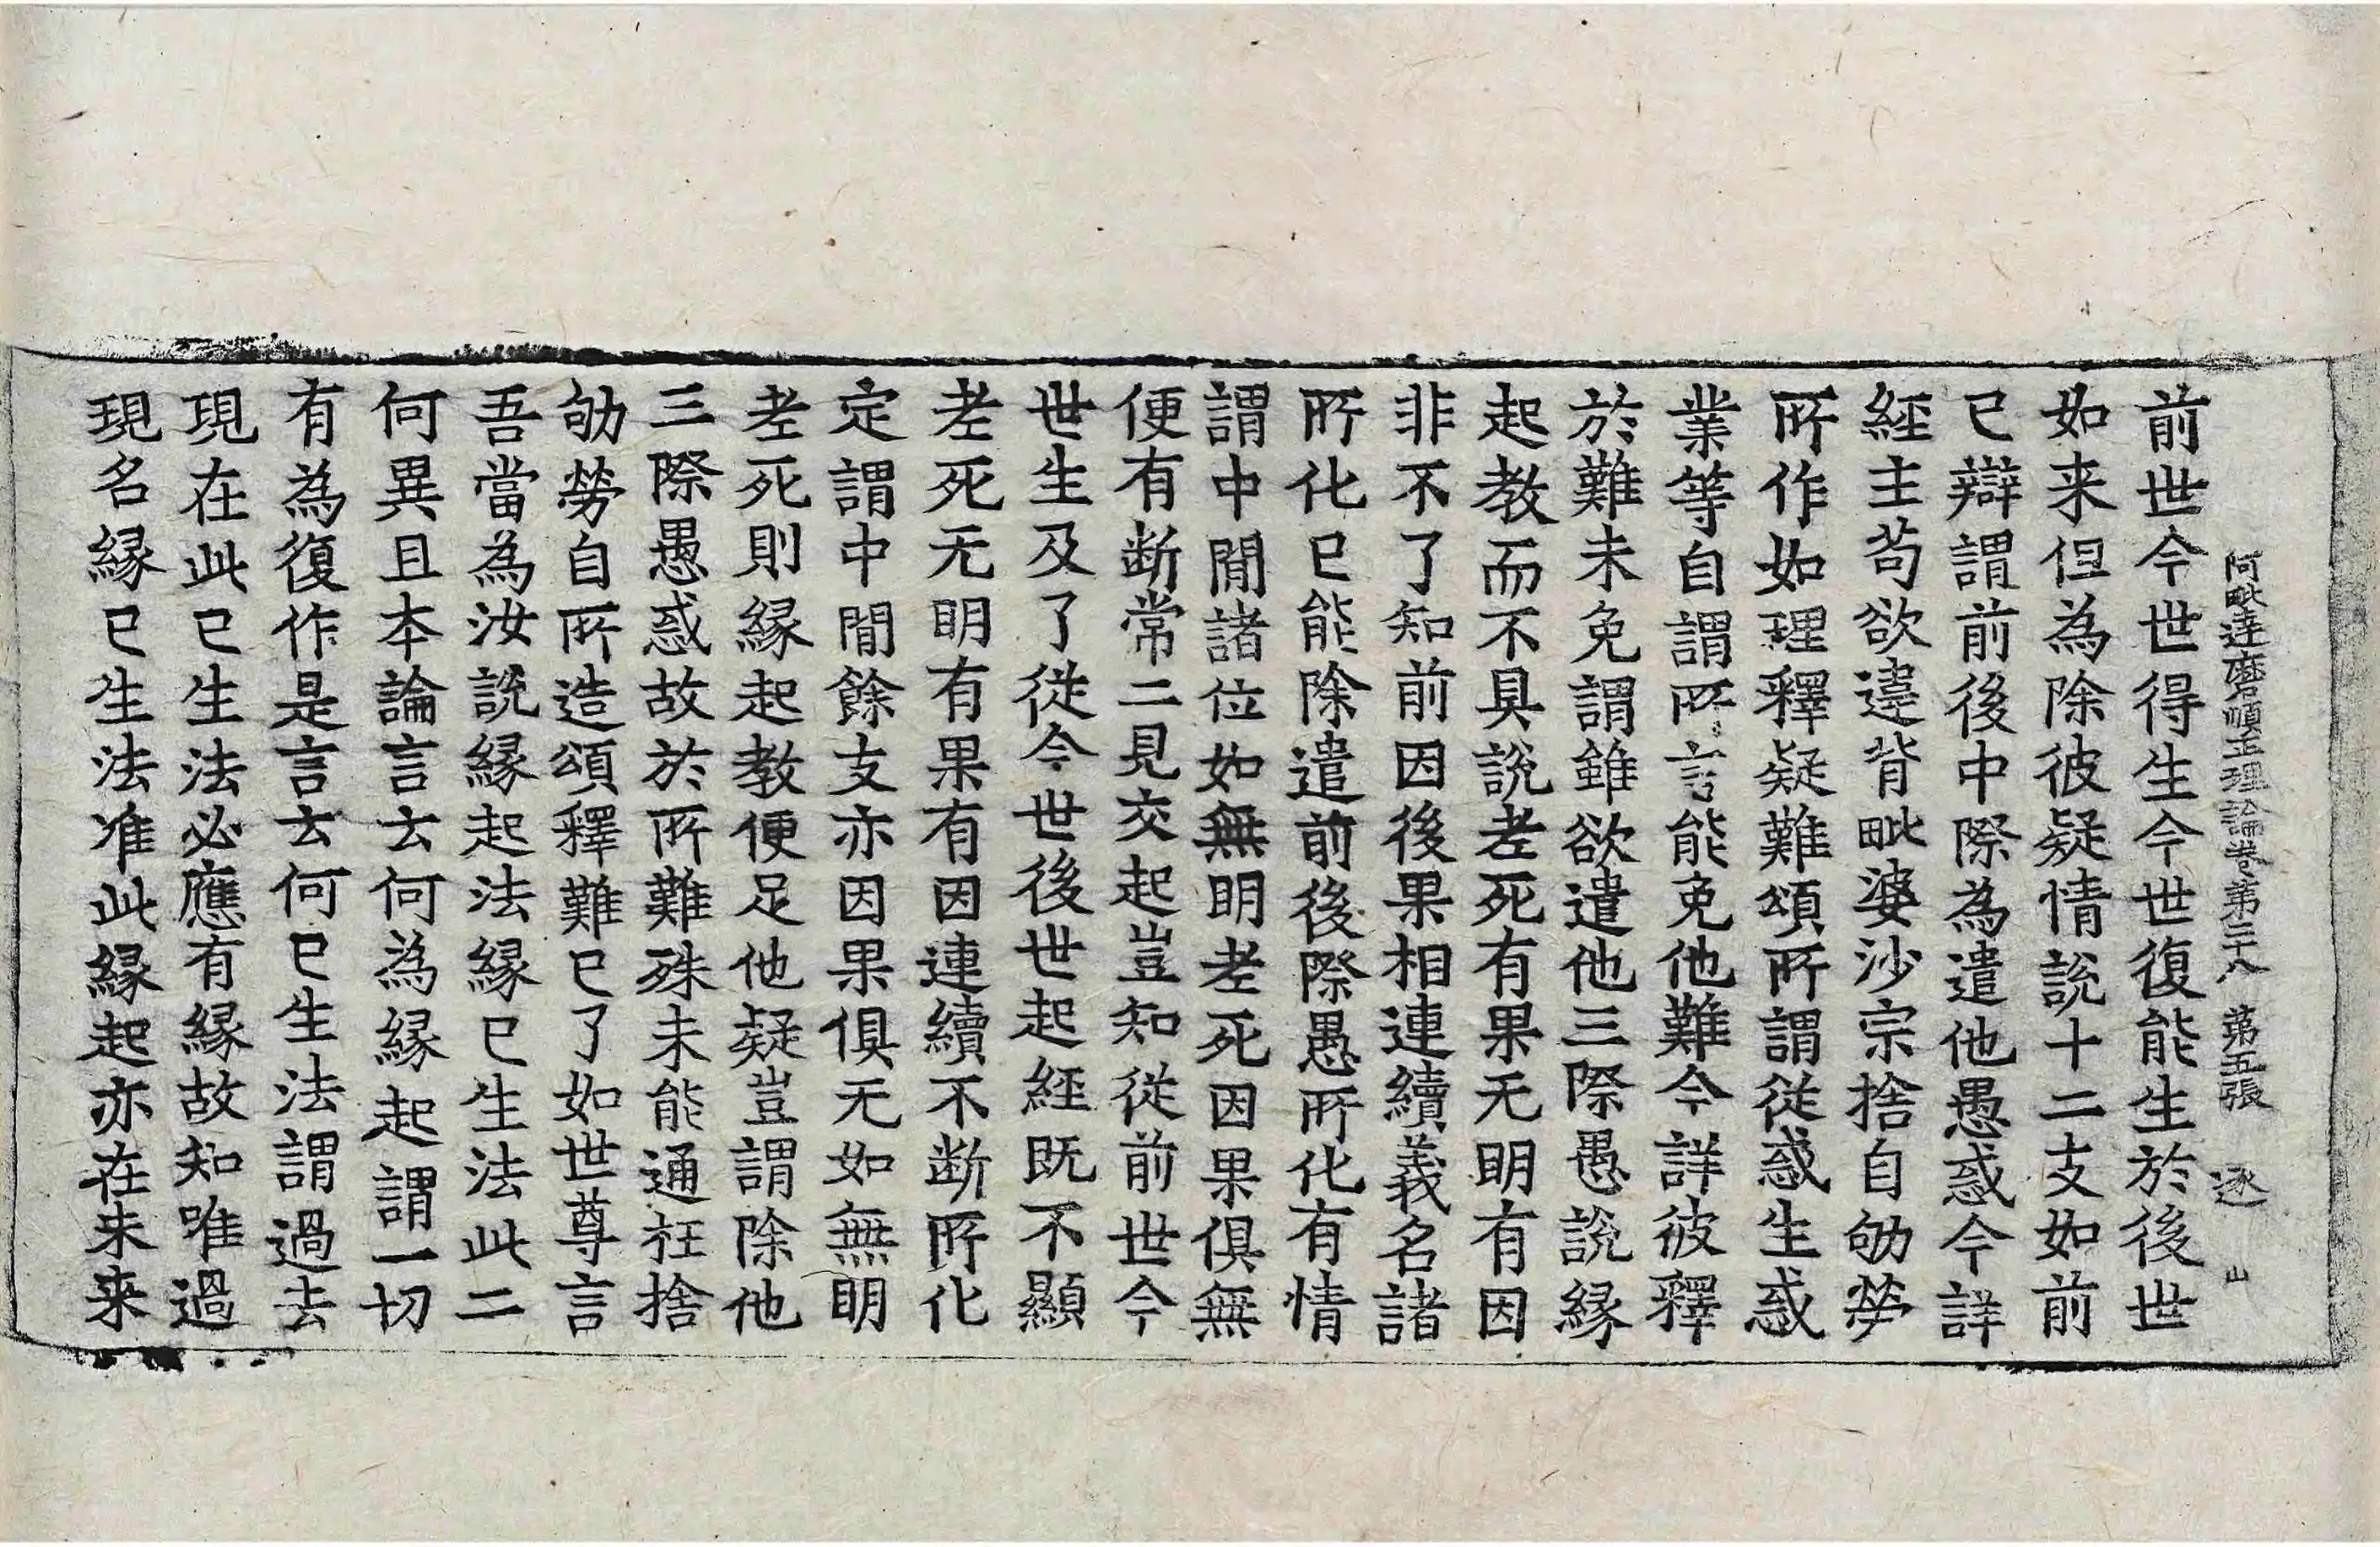 阿毗達磨順正理論卷第二十八 第五張 逐
前世今世得生今世復能生於後世
如来但為除彼疑情說十二支如前
已辯謂前後中際為遣他愚惑今詳
經主苟欲違背毗婆沙宗捨自劬勞
所作如理釋疑難頌所謂從惑生惑
業等自謂所言能免他難今詳彼釋
於難未免謂雖欲遣他三際愚說縁
起教而不具說老死有果无明有因
非不了知前因後果相連續義名諸
所化已能除遣前後際愚所化有情
謂中間諸位如無明老死因果俱無
便有断常二見交起豈知從前世今
世生及了從今世後世起經既不顯
老死无明有果有因連續不断所化
定謂中間餘支亦因果俱无如無明
老死則縁起教便足他疑豈謂除他
三際愚惑故於所難殊未能通枉捨
劬勞自所造頌釋難已了如世尊言
吾當為汝說縁起法縁已生法此二
何異且本論言云何為縁起謂一切
有為復作是言云何已生法謂過去
現在此已生法必應有縁故知唯過
現名縁已生法准此縁起亦在未来